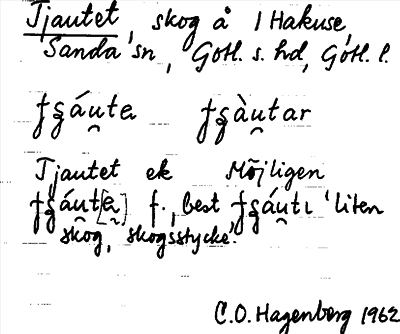 Tjautet, skog å 1 Hakuse,
Sanda sn, Gotl. s. hd, Gotl. l.
fʂáu̯ta fʂàu̯tar
Tjautet ek Möjligen
fʂáu̯t[a] f., best fʂáu̯tı 'liten
skog, skogsstycke'.
C.O. Hagenberg 1962